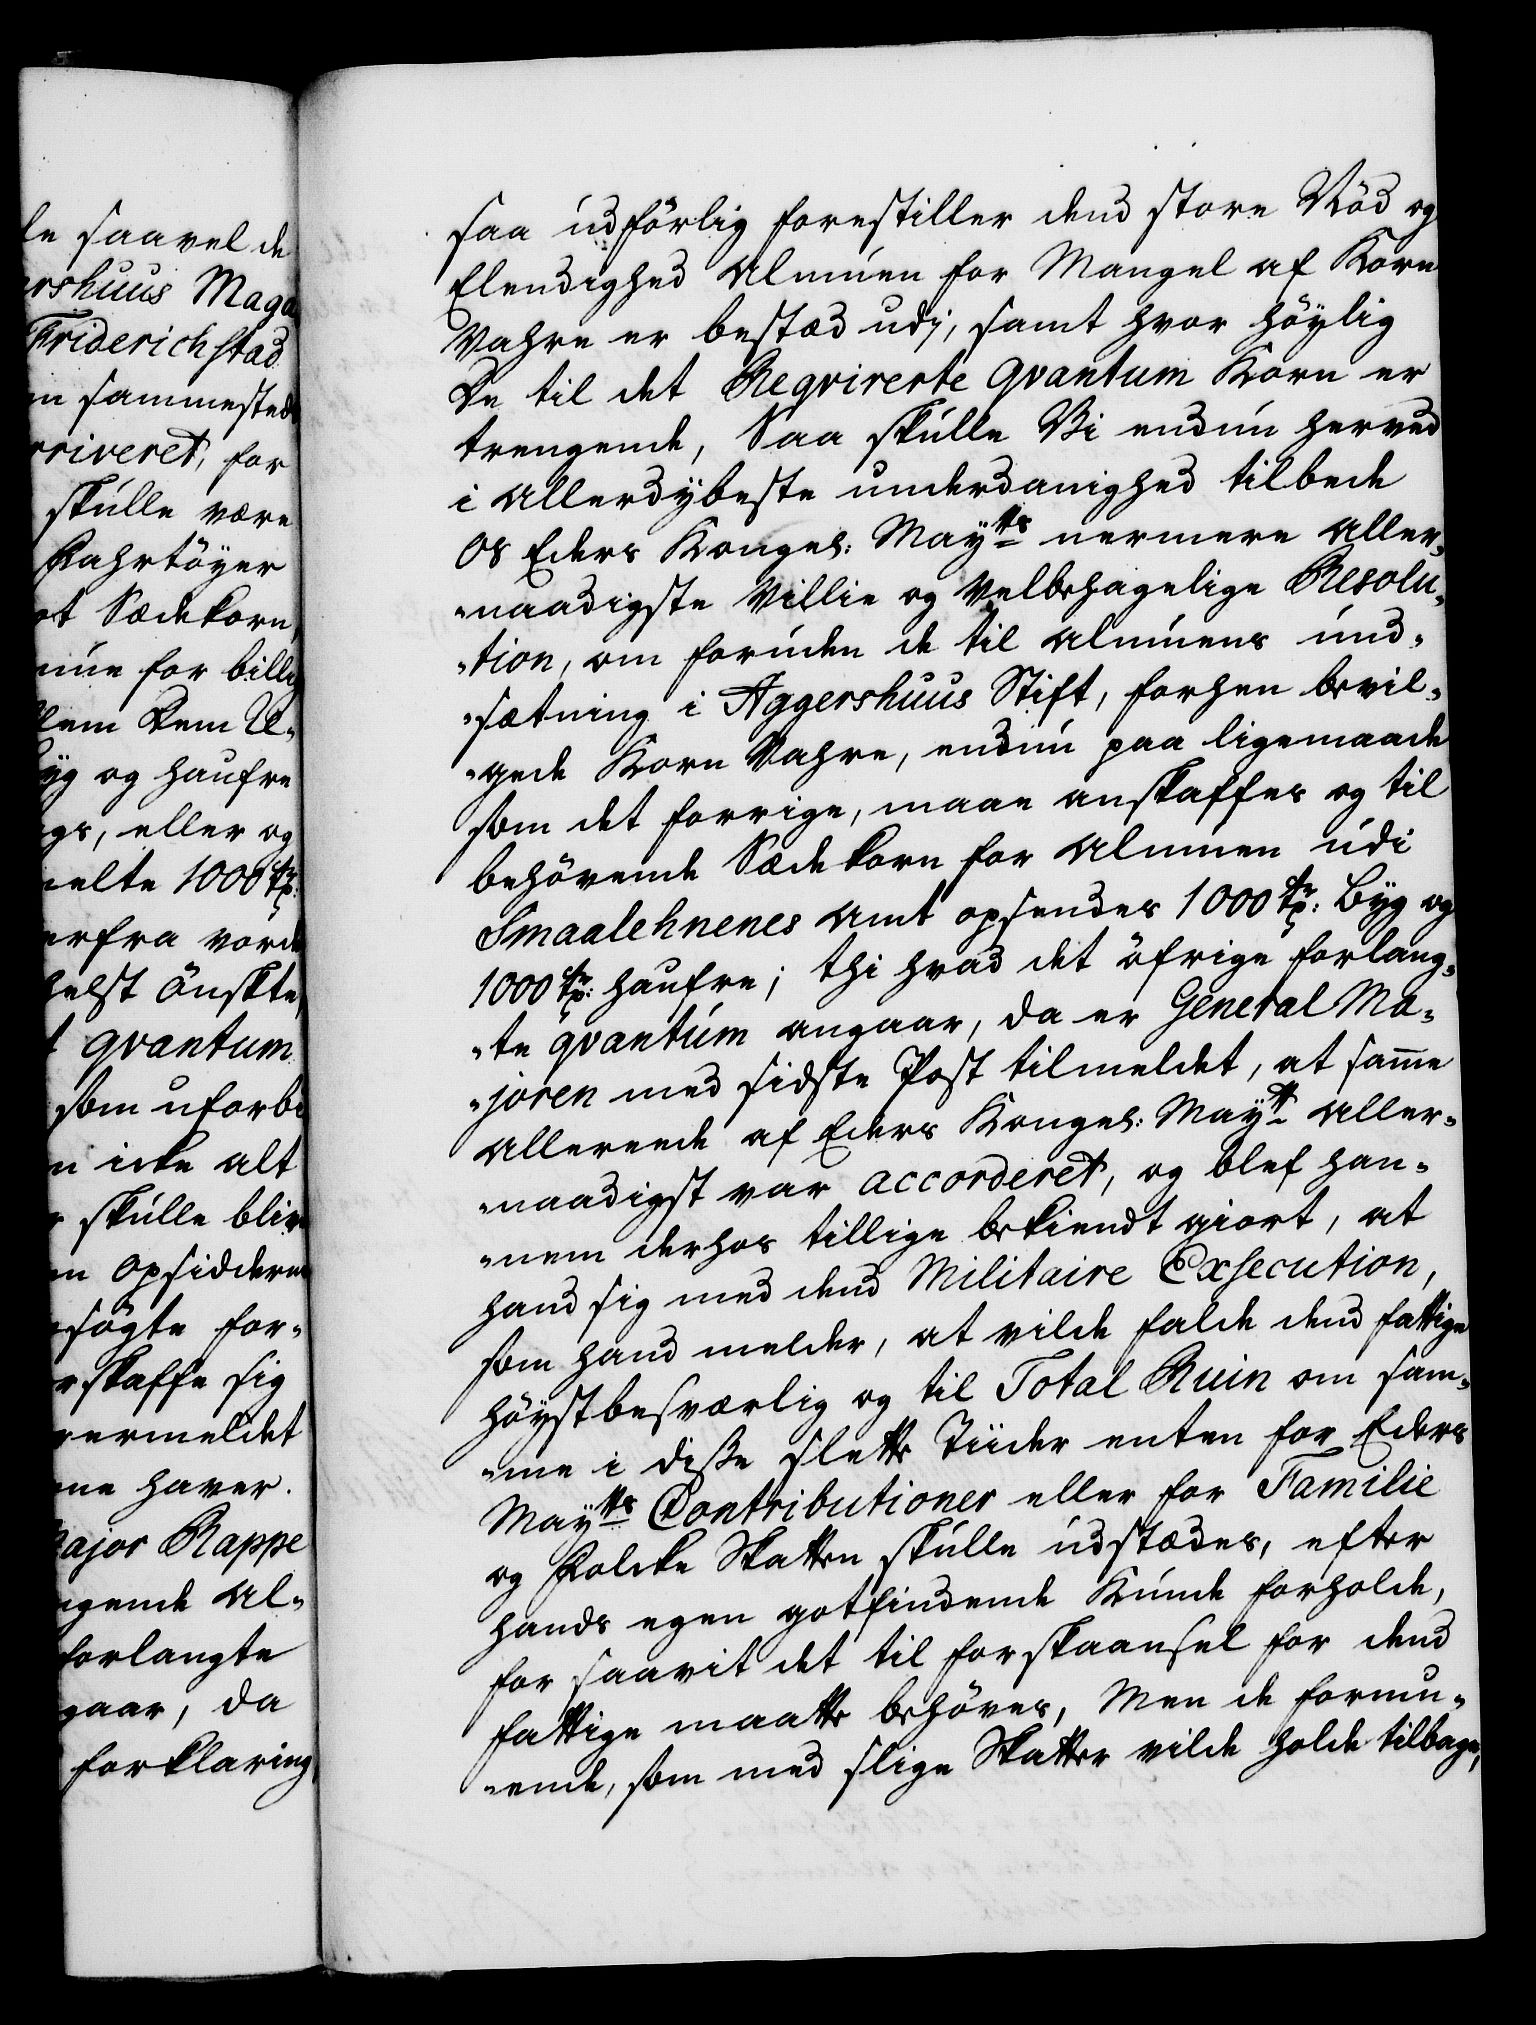 le saavel de
ershuus Maga
Friderichstad
en sammesteds
rriveret, for
skulle være
Fahrtöyer
et Sædekorn,
nue for billig
lem Dem U-
yg og haufre
gs, eller og
elte 1000 tr:
erfra vorde
helst önskte,
t qvantum
som uforbe
n icke alt
r skulle blive
en opsiddere
søgte for-
rskaffe sig
vermeldet
ne haver.
ajor Rappe
gende Al-
forlangte
gaar, da
forklaring
saa udförlig forestiller dend store Nöd og
Elendighed Almuen for Mangel af Korn
Vahre er bestæd udj, samt hvor höylig
De til det Reqvirerte Qvantum Korn er
trengende, Saa skulle Vi endnu herved
i allerdybeste underdanighed tilbede
os Eders Kongel: Mayts nermere aller-
-naadigste Villie og Velbehagelige Resolu-
-tion, om foruden de til Almuens und-
-sætning i Aggershuus Stift, forhen bevil-
-gede Korn Vahre, endnu paa ligemaade
som det forrige, maae anskaffes og til
behövende Sædekorn for Almuen udi
Smaalehnenes Amt opsendes 1000 tr: Byg og
1000 tr: haufre; thi hvad det öfrige forlang-
-te qvantum angaar, da er General Ma-
-joren med sidste Post tilmeldet, at sam̄e
allereede af Eders Kongel: Mayt aller-
-naadigst var accorderet, og blef han-
-nem derhos tillige bekiendt giort, at
hand sig med dend Militaire Exsecution,
som hand melder, at vilde falde dend fattige
höystbesværlig og til Total Ruin om sam-
-me i disse slette Tiider enten for Eders
Mayts Contributioner eller for Familie
og Folcke Skatten skulle udstædes, efter
hands egen gotfindende Kunde forholde,
for saavit det til forskaansel for dend
fattige maatte behöves, Men de formu-
-ende, som med slige Skatter vilde holde tilbage,